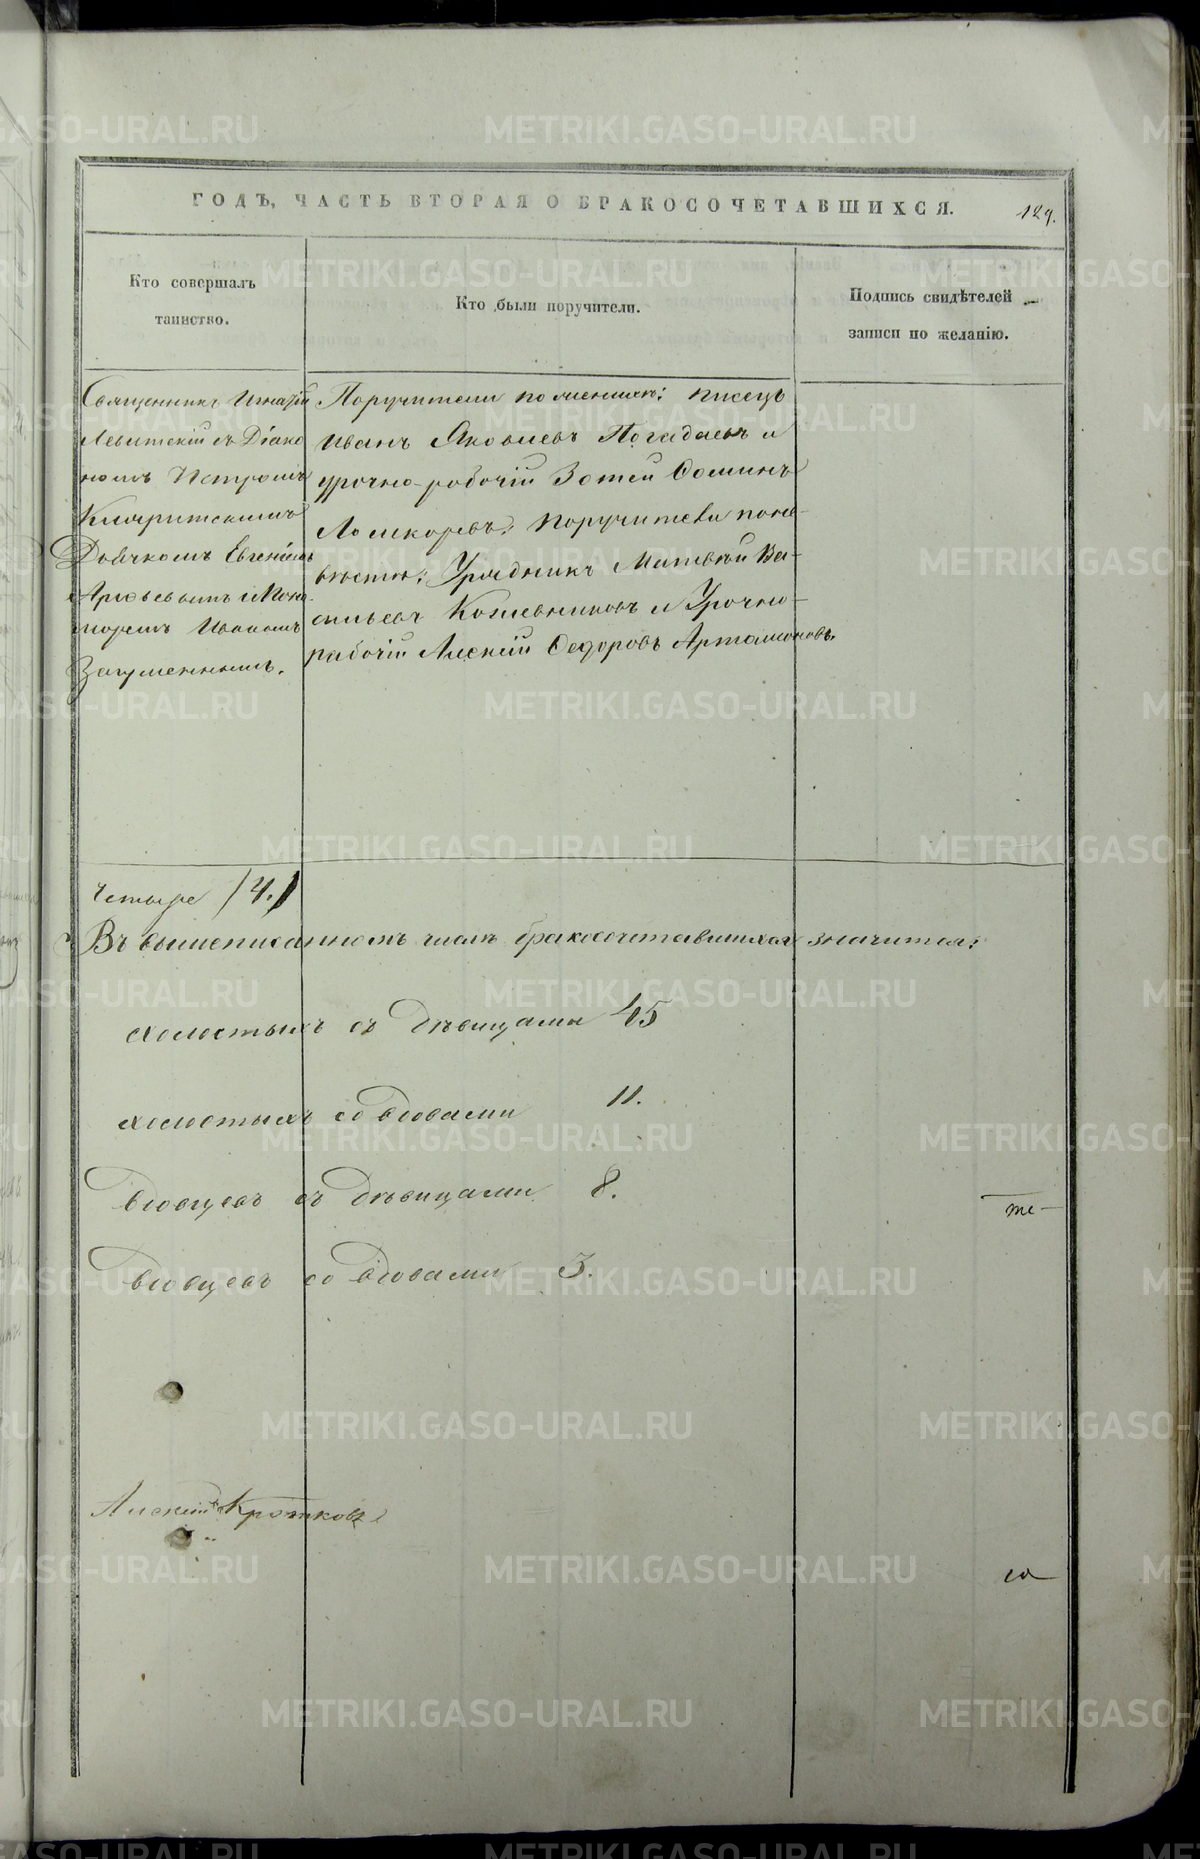 ГОДЪ, ЧАСТЬ ВТОРАЯ О БРАКОСОЧЕТАВШИХСЯ.
129.
Кто совершалъ
таинство.
Кто были поручители.
Подпись свидѣтелей
записи по желанію.
Священникъ Игнатій
Левитскій съ Діако
номъ Петромъ
Дьячкомъ Евгеніемъ
Арефьевымъ и Поно-
моремъ Иваномъ
Загуменнымъ.
Поручители по женихѣ: писецъ
Иванъ Яковлевъ Погадаевъ и
урочно-рабочій Зотей Ѳоминъ
поручители поне-
вѣстѣ: Урядникъ Матвѣй Ва-
сильевъ Кожевниковъ и Урочно-
рабочій Алексій Ѳедоровъ Артамоновъ.
Четыре /4./
Въ вышеписанномъ числѣ бракосочетавшихся значится:
холостыхъ съ дѣвицами 45
холостыхъ со вдовами 11.
вдовцевъ съ дѣвицами 8.
те-
вдовцевъ со вдовами 3.
Алексій Кротковъ
METRIKI.GASO-URAL.RU